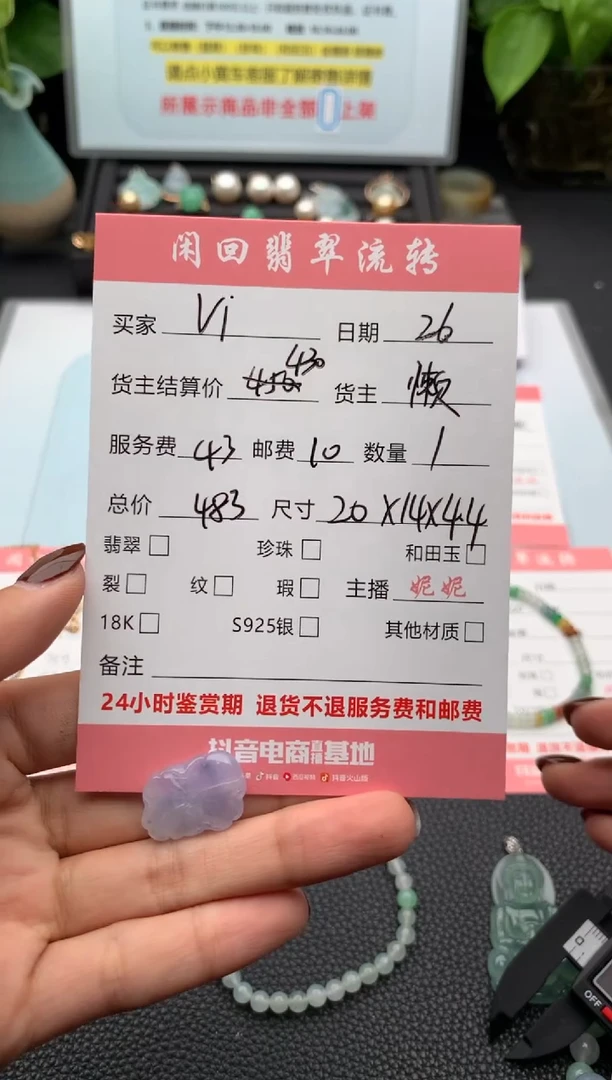 请点小黄车客服了解寄售详情
所展示商品非全部 上架
闲回翡翠流转
买家 Vi 日期 26
货主结算价 450 430 货主 懒
服务费 43 邮费 10 数量 1
总价 483 尺寸 20X14X4.4
翡翠 珍珠 和田玉
裂 纹 瑕 主播 妮妮
18K S925银 其他材质
备注
24小时鉴赏期 退货不退服务费和邮费
抖音电商直播基地
抖音 西瓜视频 抖音火山版
OFF